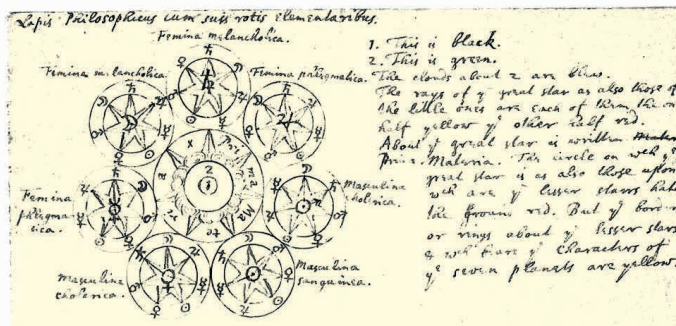 Lapis Philosophicus cum suis rotis elementaribus.
Femina melancholica.
Femina melancholica.
Femina phlegmatica.
Femina
phlegma-
tica.
Masculina
cholerica.
Masculina
cholerica.
Masculina
sanguinea.
1. This is black.
2. This is green.
The clouds about 2 are blew.
The rays of ye great star as also those of
the little ones are each of them the one
half yellow ye other half red.
About ye great star is written
Prima. Materia. The circle on wch ye
great star is as also those upon
wch are ye lesser starrs hath
the ground red. But ye borders
or rings about ye lesser stars
wch beare ye characters of
ye seven planets are yellow.